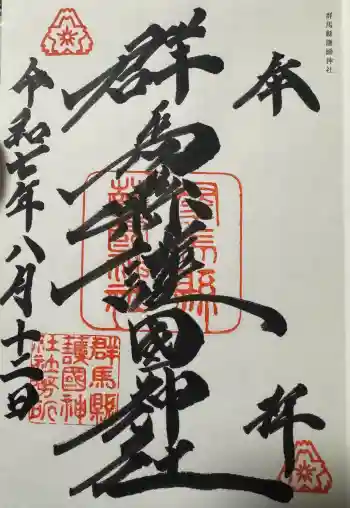 群馬縣護國神社
奉拝
群馬縣護國神社
令和七年八月十二日
群馬縣
護國神
社社務所